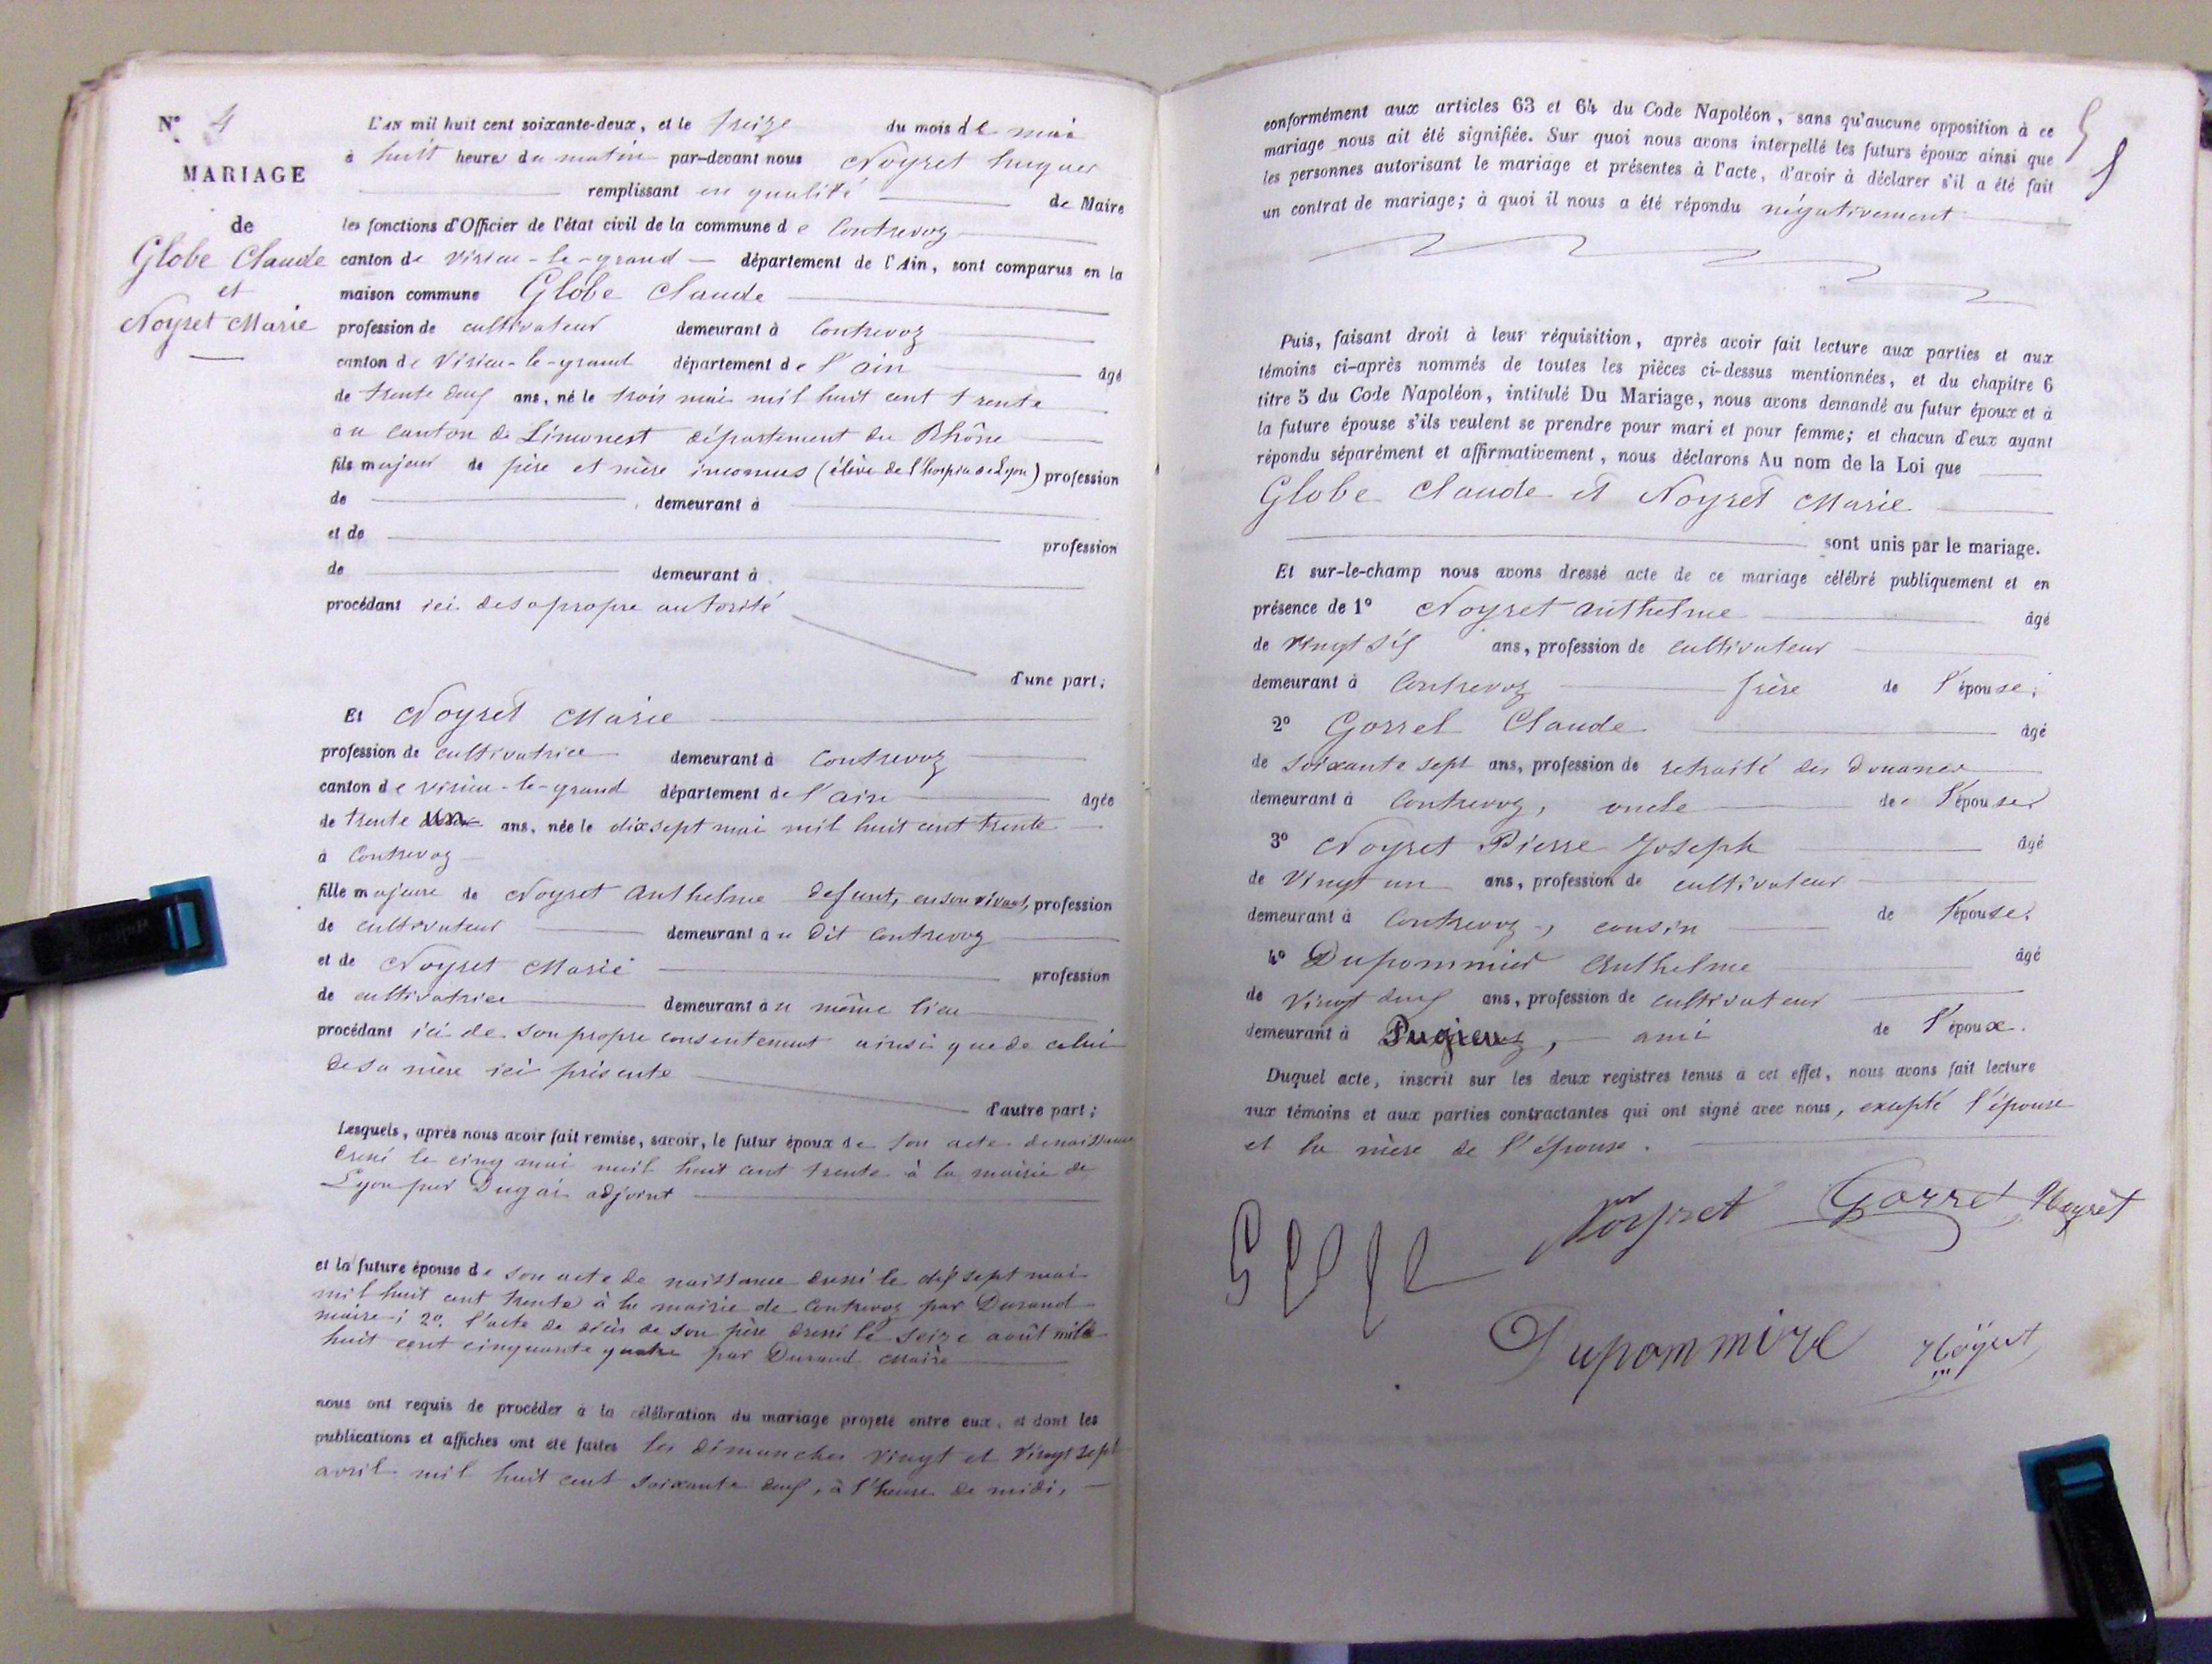 N° 4
MARIAGE
de
Globe Claude
et
Noyret Marie
L'AN mil huit cent soixante-deux, et le treize du mois de mai
à huit heures du matin par-devant nous Noyret hugues
remplissant en qualité de Maire
les fonctions d'Officier de l'état civil de la commune de Contrevoz
canton de Virieu-le-grand département de l'Ain, sont comparus en la
maison commune Globe Claude
profession de cultivateur demeurant à Contrevoz
canton de Virieu-le-grand département de l'ain âgé
de trente deux ans, né le trois mai mil huit cent trente
au canton de Limonest département du Rhône
fils majeur de père et mère inconnus (élève de l'hospice de Lyon) profession
de demeurant à
et de profession
de demeurant à
procédant ici de sa propre autorité
d'une part;
Et Noyret Marie
profession de cultivatrice demeurant à Contrevoz
canton de virieu-le-grand département de l'ain âgée
de trente un ans, née le dix sept mai mil huit cent trente
à Contrevoz
fille majeure de Noyret Anthelme defunt, en son vivant, profession
de cultivateur demeurant au dit Contrevoz
et de Noyret Marie profession
de cultivatrice demeurant au même lieu
procédant ici de son propre consentement ainsi que de celui
de sa mère ici présente
d'autre part;
Lesquels, après nous avoir fait remise, savoir, le futur époux de son acte de naissance
dressé le cinq mai mil huit cent trente à la mairie de
Lyon par Dugai adjoint
et la future épouse de son acte de naissance dressé le dix sept mai
mil huit cent trente à la mairie de Contrevoz par Durand
maire; 2° l'acte de décès de son père dressé le seize août mil
huit cent cinquante quatre par Durand Maire
nous ont requis de procéder à la célébration du mariage projeté entre eux, et dont les
publications et affiches ont été faites les dimanches vingt et vingt sept
avril mil huit cent soixante deux, à l'heure de midi,
conformément aux articles 63 et 64 du Code Napoléon, sans qu'aucune opposition à ce
mariage nous ait été signifiée. Sur quoi nous avons interpellé les futurs époux ainsi que
les personnes autorisant le mariage et présentes à l'acte, d'avoir à déclarer s'il a été fait
un contrat de mariage; à quoi il nous a été répondu négativement
Puis, faisant droit à leur réquisition, après avoir fait lecture aux parties et aux
témoins ci-après nommés de toutes les pièces ci-dessus mentionnées, et du chapitre 6
titre 5 du Code Napoléon, intitulé Du Mariage, nous avons demandé au futur époux et à
la future épouse s'ils veulent se prendre pour mari et pour femme; et chacun d'eux ayant
répondu séparément et affirmativement, nous déclarons Au nom de la Loi que
Globe Claude et Noyret Marie
sont unis par le mariage.
Et sur-le-champ nous avons dressé acte de ce mariage célébré publiquement et en
présence de 1° Noyret Anthelme âgé
de vingt six ans, profession de cultivateur
demeurant à Contrevoz frère de l'épouse;
2° Gorrel Claude âgé
de soixante sept ans, profession de retraité des douanes
demeurant à Contrevoz, oncle de l'épouse
3° Noyret Pierre Joseph âgé
de vingt un ans, profession de cultivateur
demeurant à Contrevoz, cousin de l'épouse;
4° Dupommier Anthelme âgé
de vingt deux ans, profession de cultivateur
demeurant à Pugieu, ami de l'époux.
Duquel acte, inscrit sur les deux registres tenus à cet effet, nous avons fait lecture
aux témoins et aux parties contractantes qui ont signé avec nous, excepté l'épouse
et la mère de l'épouse.
Noyret Gorrel Noyret
Dupommire Noyret